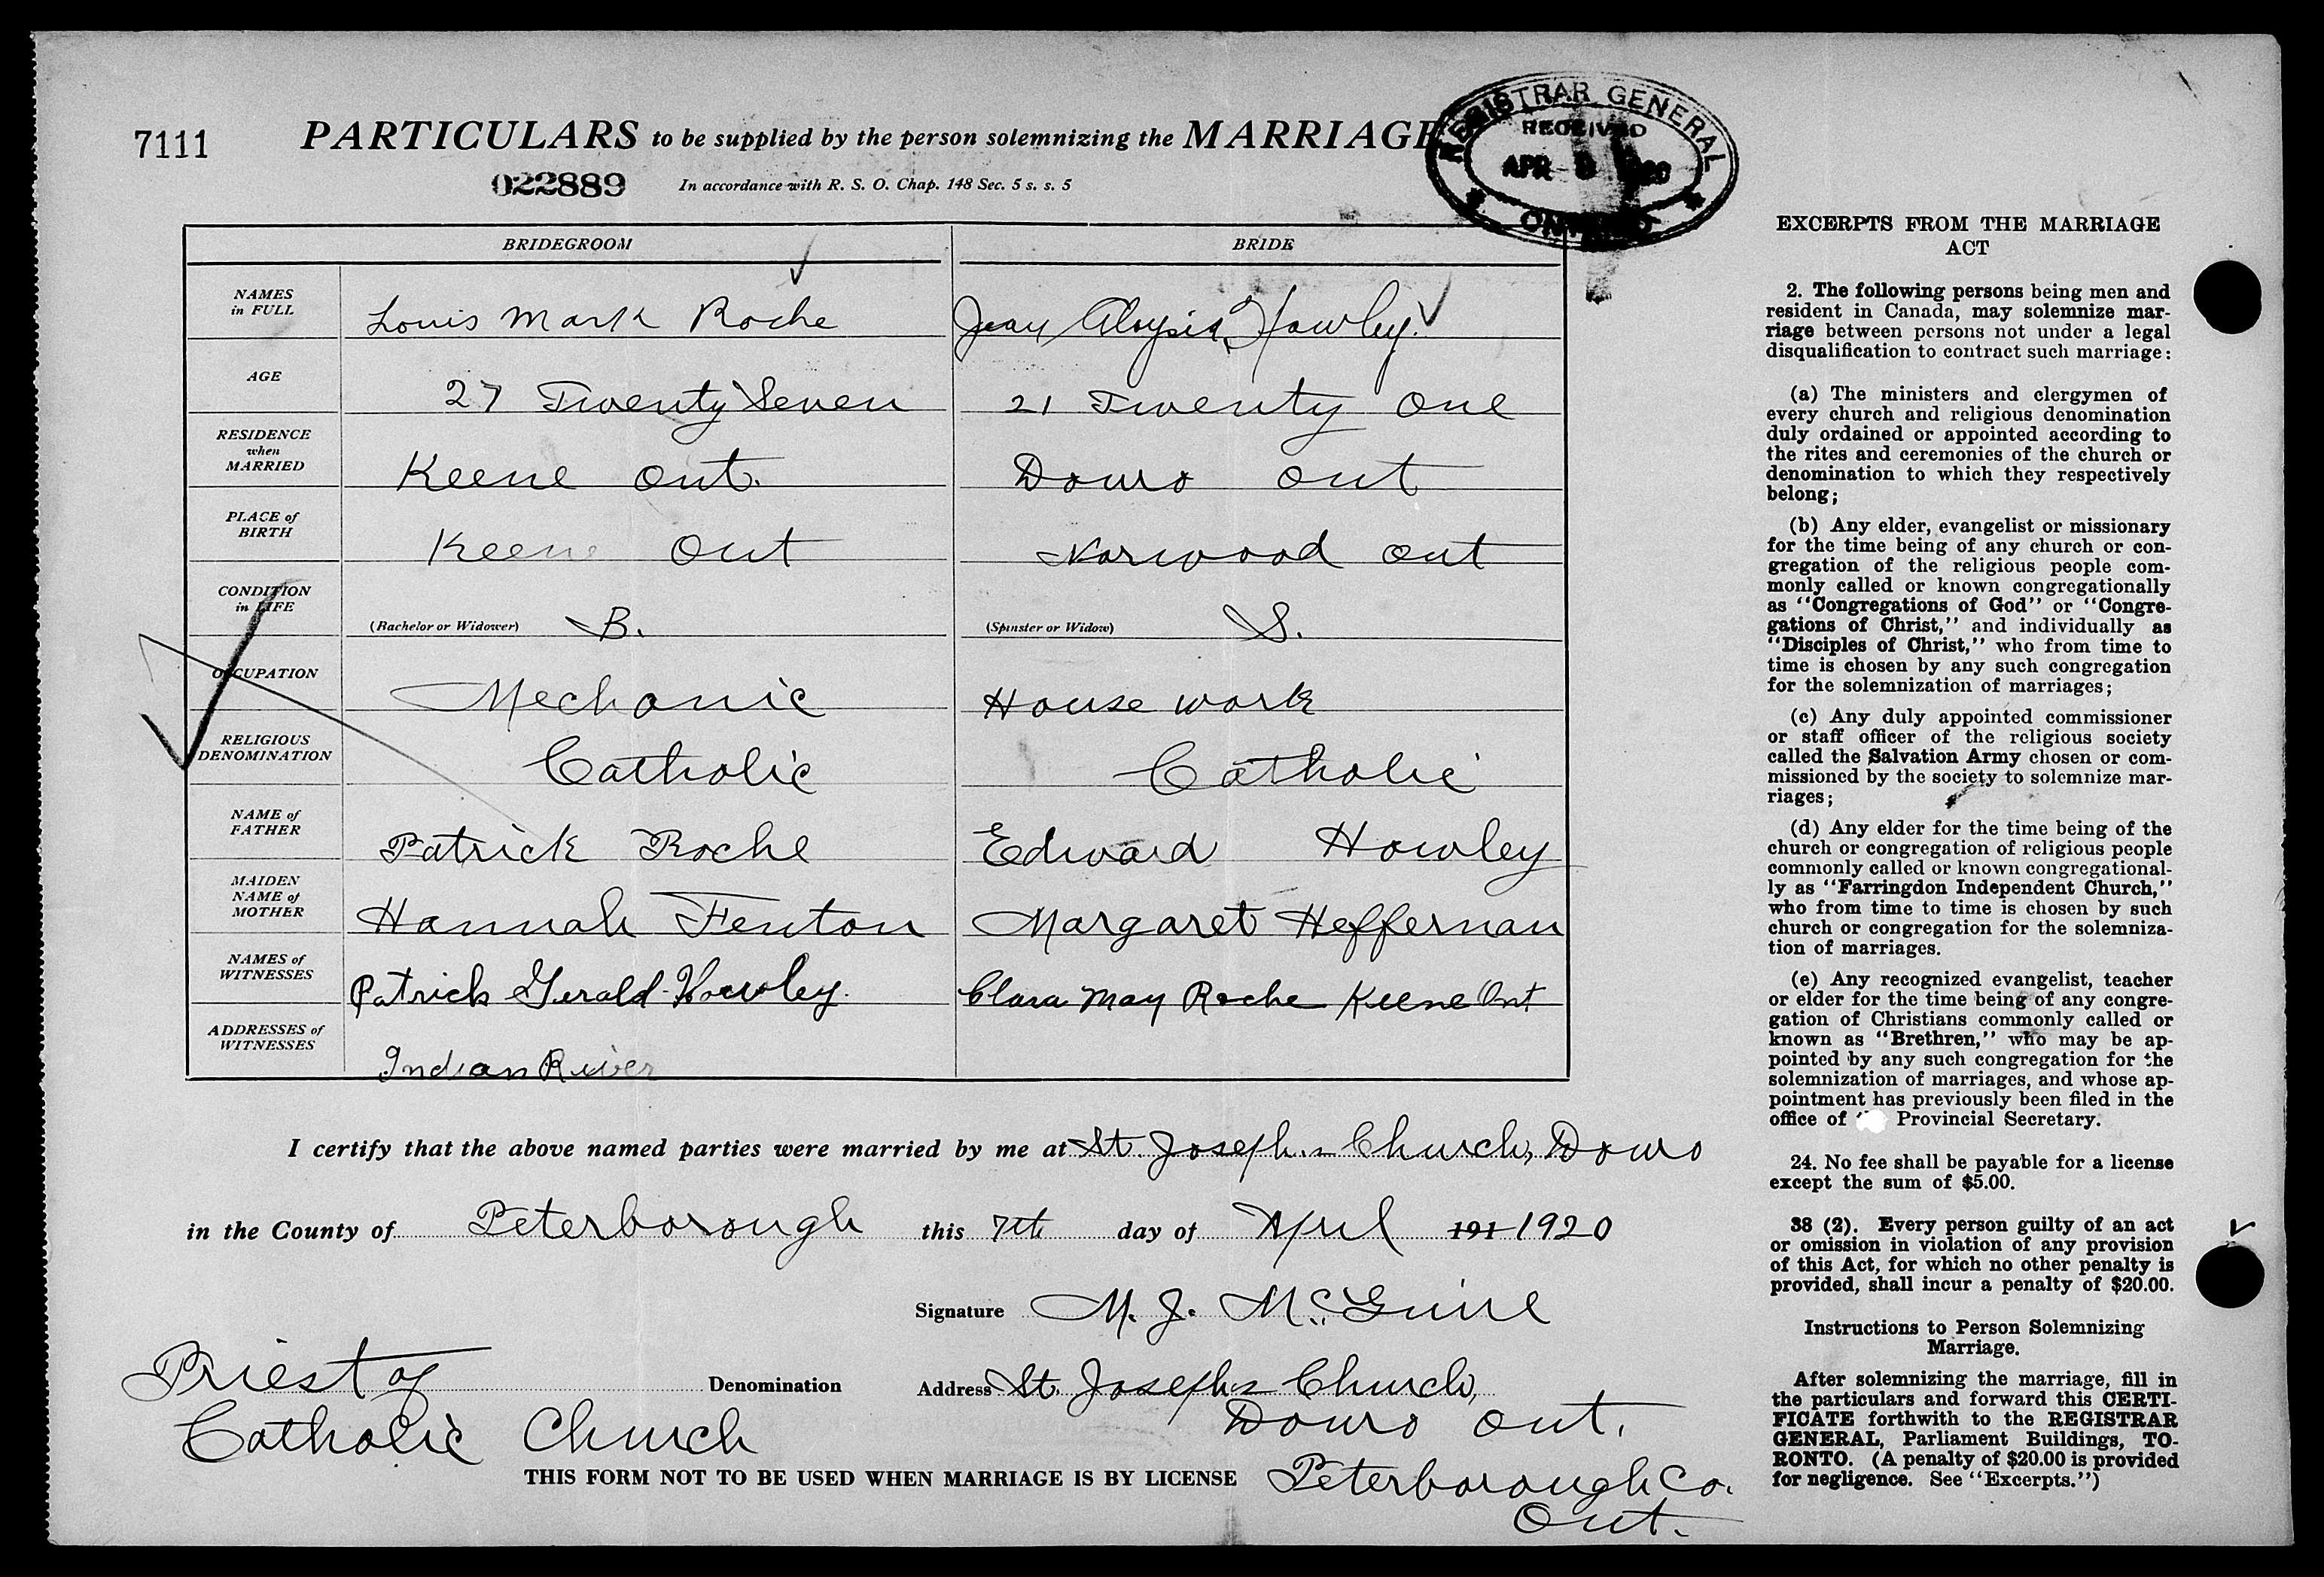 7111
PARTICULARS to be supplied by the person solemnizing the MARRIAGE
022889
In accordance with R. S. O. Chap. 148 Sec. 5 s. s. 5
REGISTRAR GENERAL
RECEIVED
APR 1920
ONTARIO
BRIDEGROOM
BRIDE
NAMES in FULL
Louis Mark Roche
Jean Howley.
AGE
27 Twenty Seven
21 Twenty One
RESIDENCE when MARRIED
Keene Ont.
Douro Ont
PLACE of BIRTH
Keene Ont
Norwood Ont
CONDITION in LIFE
(Bachelor or Widower) B.
(Spinster or Widow) S.
OCCUPATION
Mechanic
House work
RELIGIOUS DENOMINATION
Catholic
Catholic
NAME of FATHER
Patrick Roche
Edward Howley
MAIDEN NAME of MOTHER
Hannah Fenton
Margaret Heffernan
NAMES of WITNESSES
Patrick Gerald Howley.
Clara May Roche Keene Ont
ADDRESSES of WITNESSES
Indian River
I certify that the above named parties were married by me at St. Joseph's Church, Douro
in the County of Peterborough this 7th day of April 191 1920
Signature M. J. McGuire
Priest of Denomination
Catholic Church
Address St. Joseph's Church,
Douro Ont.
Peterborough Co.
Ont.
THIS FORM NOT TO BE USED WHEN MARRIAGE IS BY LICENSE
EXCERPTS FROM THE MARRIAGE
ACT
2. The following persons being men and
resident in Canada, may solemnize mar-
riage between persons not under a legal
disqualification to contract such marriage:
(a) The ministers and clergymen of
every church and religious denomination
duly ordained or appointed according to
the rites and ceremonies of the church or
denomination to which they respectively
belong;
(b) Any elder, evangelist or missionary
for the time being of any church or con-
gregation of the religious people com-
monly called or known congregationally
as "Congregations of God" or "Congre-
gations of Christ," and individually as
"Disciples of Christ," who from time to
time is chosen by any such congregation
for the solemnization of marriages;
(c) Any duly appointed commissioner
or staff officer of the religious society
called the Salvation Army chosen or com-
missioned by the society to solemnize mar-
riages;
(d) Any elder for the time being of the
church or congregation of religious people
commonly called or known congregational-
ly as "Farringdon Independent Church,"
who from time to time is chosen by such
church or congregation for the solemniza-
tion of marriages.
(e) Any recognized evangelist, teacher
or elder for the time being of any congre-
gation of Christians commonly called or
known as "Brethren," who may be ap-
pointed by any such congregation for the
solemnization of marriages, and whose ap-
pointment has previously been filed in the
office of Provincial Secretary.
24. No fee shall be payable for a license
except the sum of $5.00.
38 (2). Every person guilty of an act
or omission in violation of any provision
of this Act, for which no other penalty is
provided, shall incur a penalty of $20.00.
Instructions to Person Solemnizing
Marriage.
After solemnizing the marriage, fill in
the particulars and forward this CERTI-
FICATE forthwith to the REGISTRAR
GENERAL, Parliament Buildings, TO-
RONTO. (A penalty of $20.00 is provided
for negligence. See "Excerpts.")